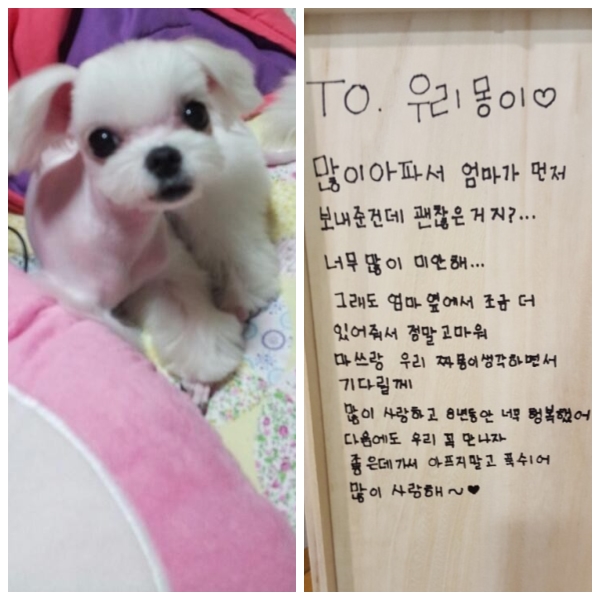 TO. 우리 몽이♡
많이아파서 엄마가 먼저
보내준건데 괜찮은거지?...
너무 많이 미안해...
그래도 엄마 옆에서 조금 더
있어줘서 정말고마워
마쓰랑 우리 짜몽이생각하면서
기다릴께
많이 사랑하고 8년동안 너무 행복했어
다음에도 우리 꼭 만나자
좋은데가서 아프지말고 푹쉬어
많이 사랑해~♥